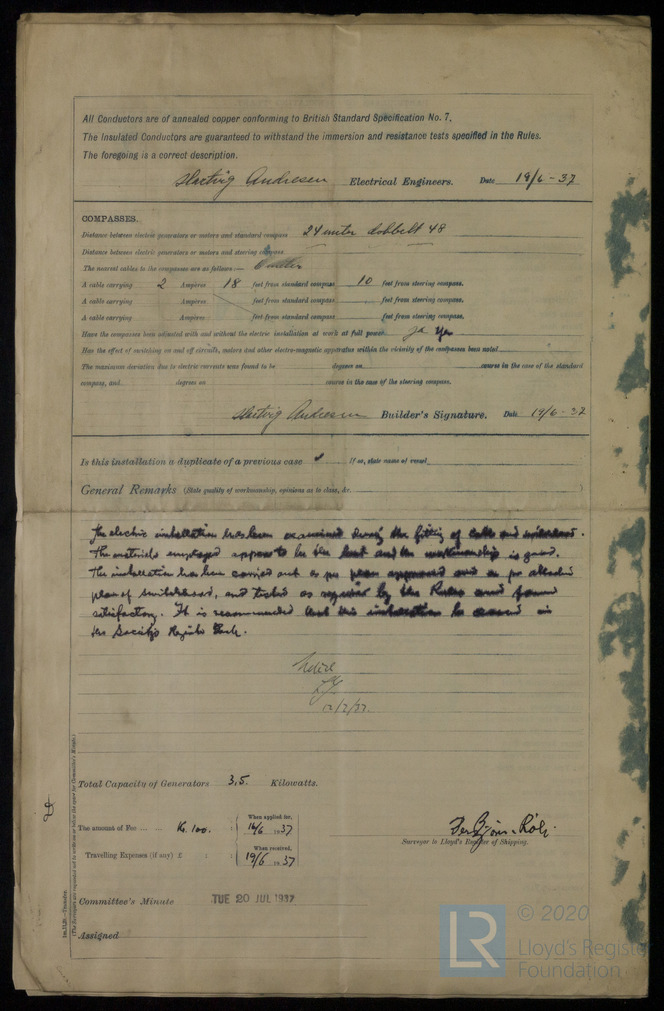 All Conductors are of annealed copper conforming to British Standard Specification No. 7.
The Insulated Conductors are guaranteed to withstand the immersion and resistance tests specified in the Rules.
The foregoing is a correct description.
Hartvig Andresen Electrical Engineers. Date 19/6-37
COMPASSES.
Distance between electric generators or motors and standard compass 24 meter dobbelt 48
Distance between electric generators or motors and steering compass
The nearest cables to the compasses are as follows:—
A cable carrying 2 Ampères 18 feet from standard compass 10 feet from steering compass.
A cable carrying Ampères feet from standard compass feet from steering compass.
A cable carrying Ampères feet from standard compass feet from steering compass.
Have the compasses been adjusted with and without the electric installation at work at full power ja Yes
Has the effect of switching on and off circuits, motors and other electro-magnetic apparatus within the vicinity of the compasses been noted
The maximum deviation due to electric currents was found to be degrees on course in the case of the standard
compass, and degrees on course in the case of the steering compass.
Hartvig Andresen Builder's Signature. Date 19/6-37
Is this installation a duplicate of a previous case If so, state name of vessel
General Remarks (State quality of workmanship, opinions as to class, &c.
The electric installation has been examined during the fitting of cable and switchboard.
The materials employed appear to be the best and the workmanship is good.
The installation has been carried out as per plan approved and as per attached
plan of switchboard, and tested as required by the Rules and found
satisfactory. It is recommended that this installation be in
the Society's Register Book.
Noted
12/7/37.
Total Capacity of Generators 3,5. Kilowatts.
The amount of Fee ... Kr. 100. : When applied for, 16/6 1937
Travelling Expenses (if any) £ : : When received, 19/6 1937
Surveyor to Lloyd's Register of Shipping.
Committee's Minute TUE 20 JUL 1937
Assigned
(The Surveyors are requested not to write on or below the space for Committee's Minute.)
LR © 2020
Lloyd's Register
Foundation